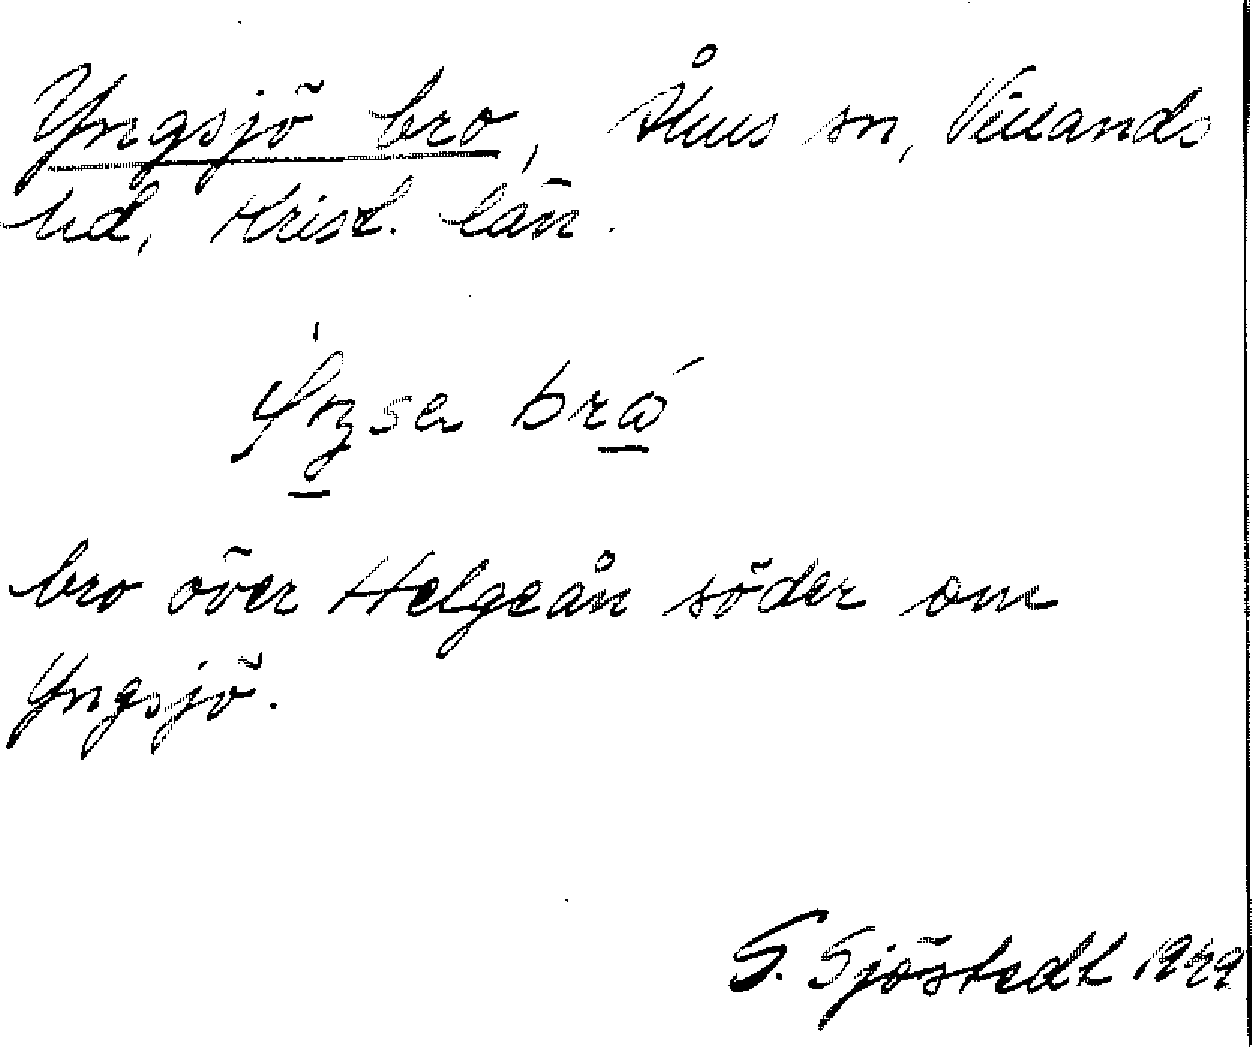 Yngsjö bro, Åhus sn, Villands
hd, Krist. län.
bro över Helgeån söder om
Yngsjö.
G. Sjöstedt 1929